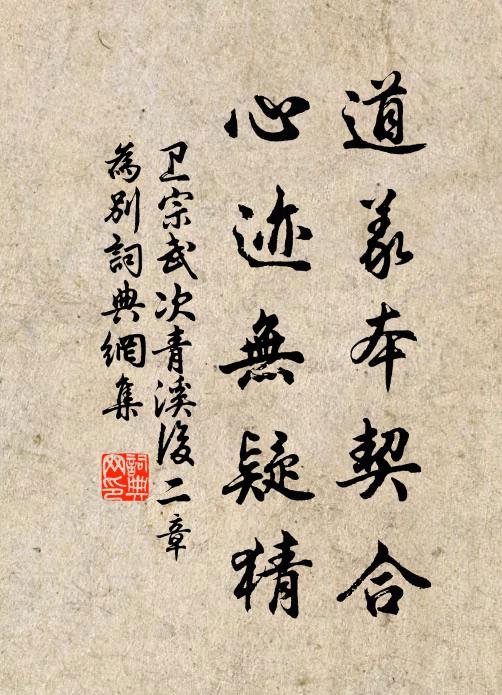 道義本契合
心迹無疑猜
卫宗武次青溪後二章
為別詞典網集
詞典
网印